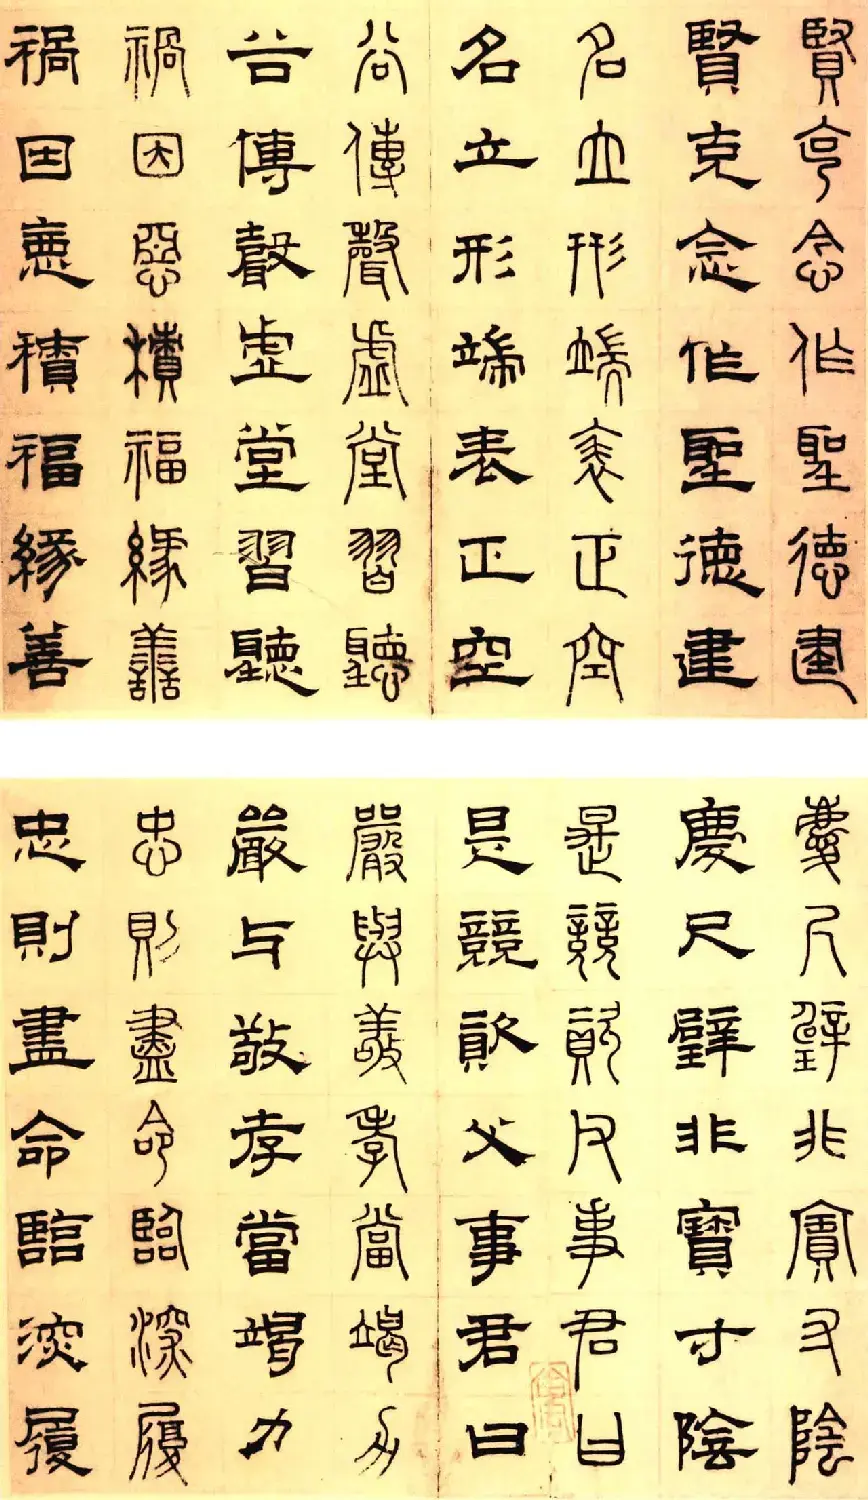 賢克念作聖德建
賢克念作聖德建
名立形端表正空
名立形端表正空
谷傳聲虛堂習聽
谷傳聲虛堂習聽
禍因惡積福緣善
禍因惡積福緣善
慶尺璧非寶寸陰
慶尺璧非寶寸陰
是競資父事君曰
是競資父事君曰
嚴與敬孝當竭力
嚴与敬孝當竭力
忠則盡命臨深履
忠則盡命臨深履